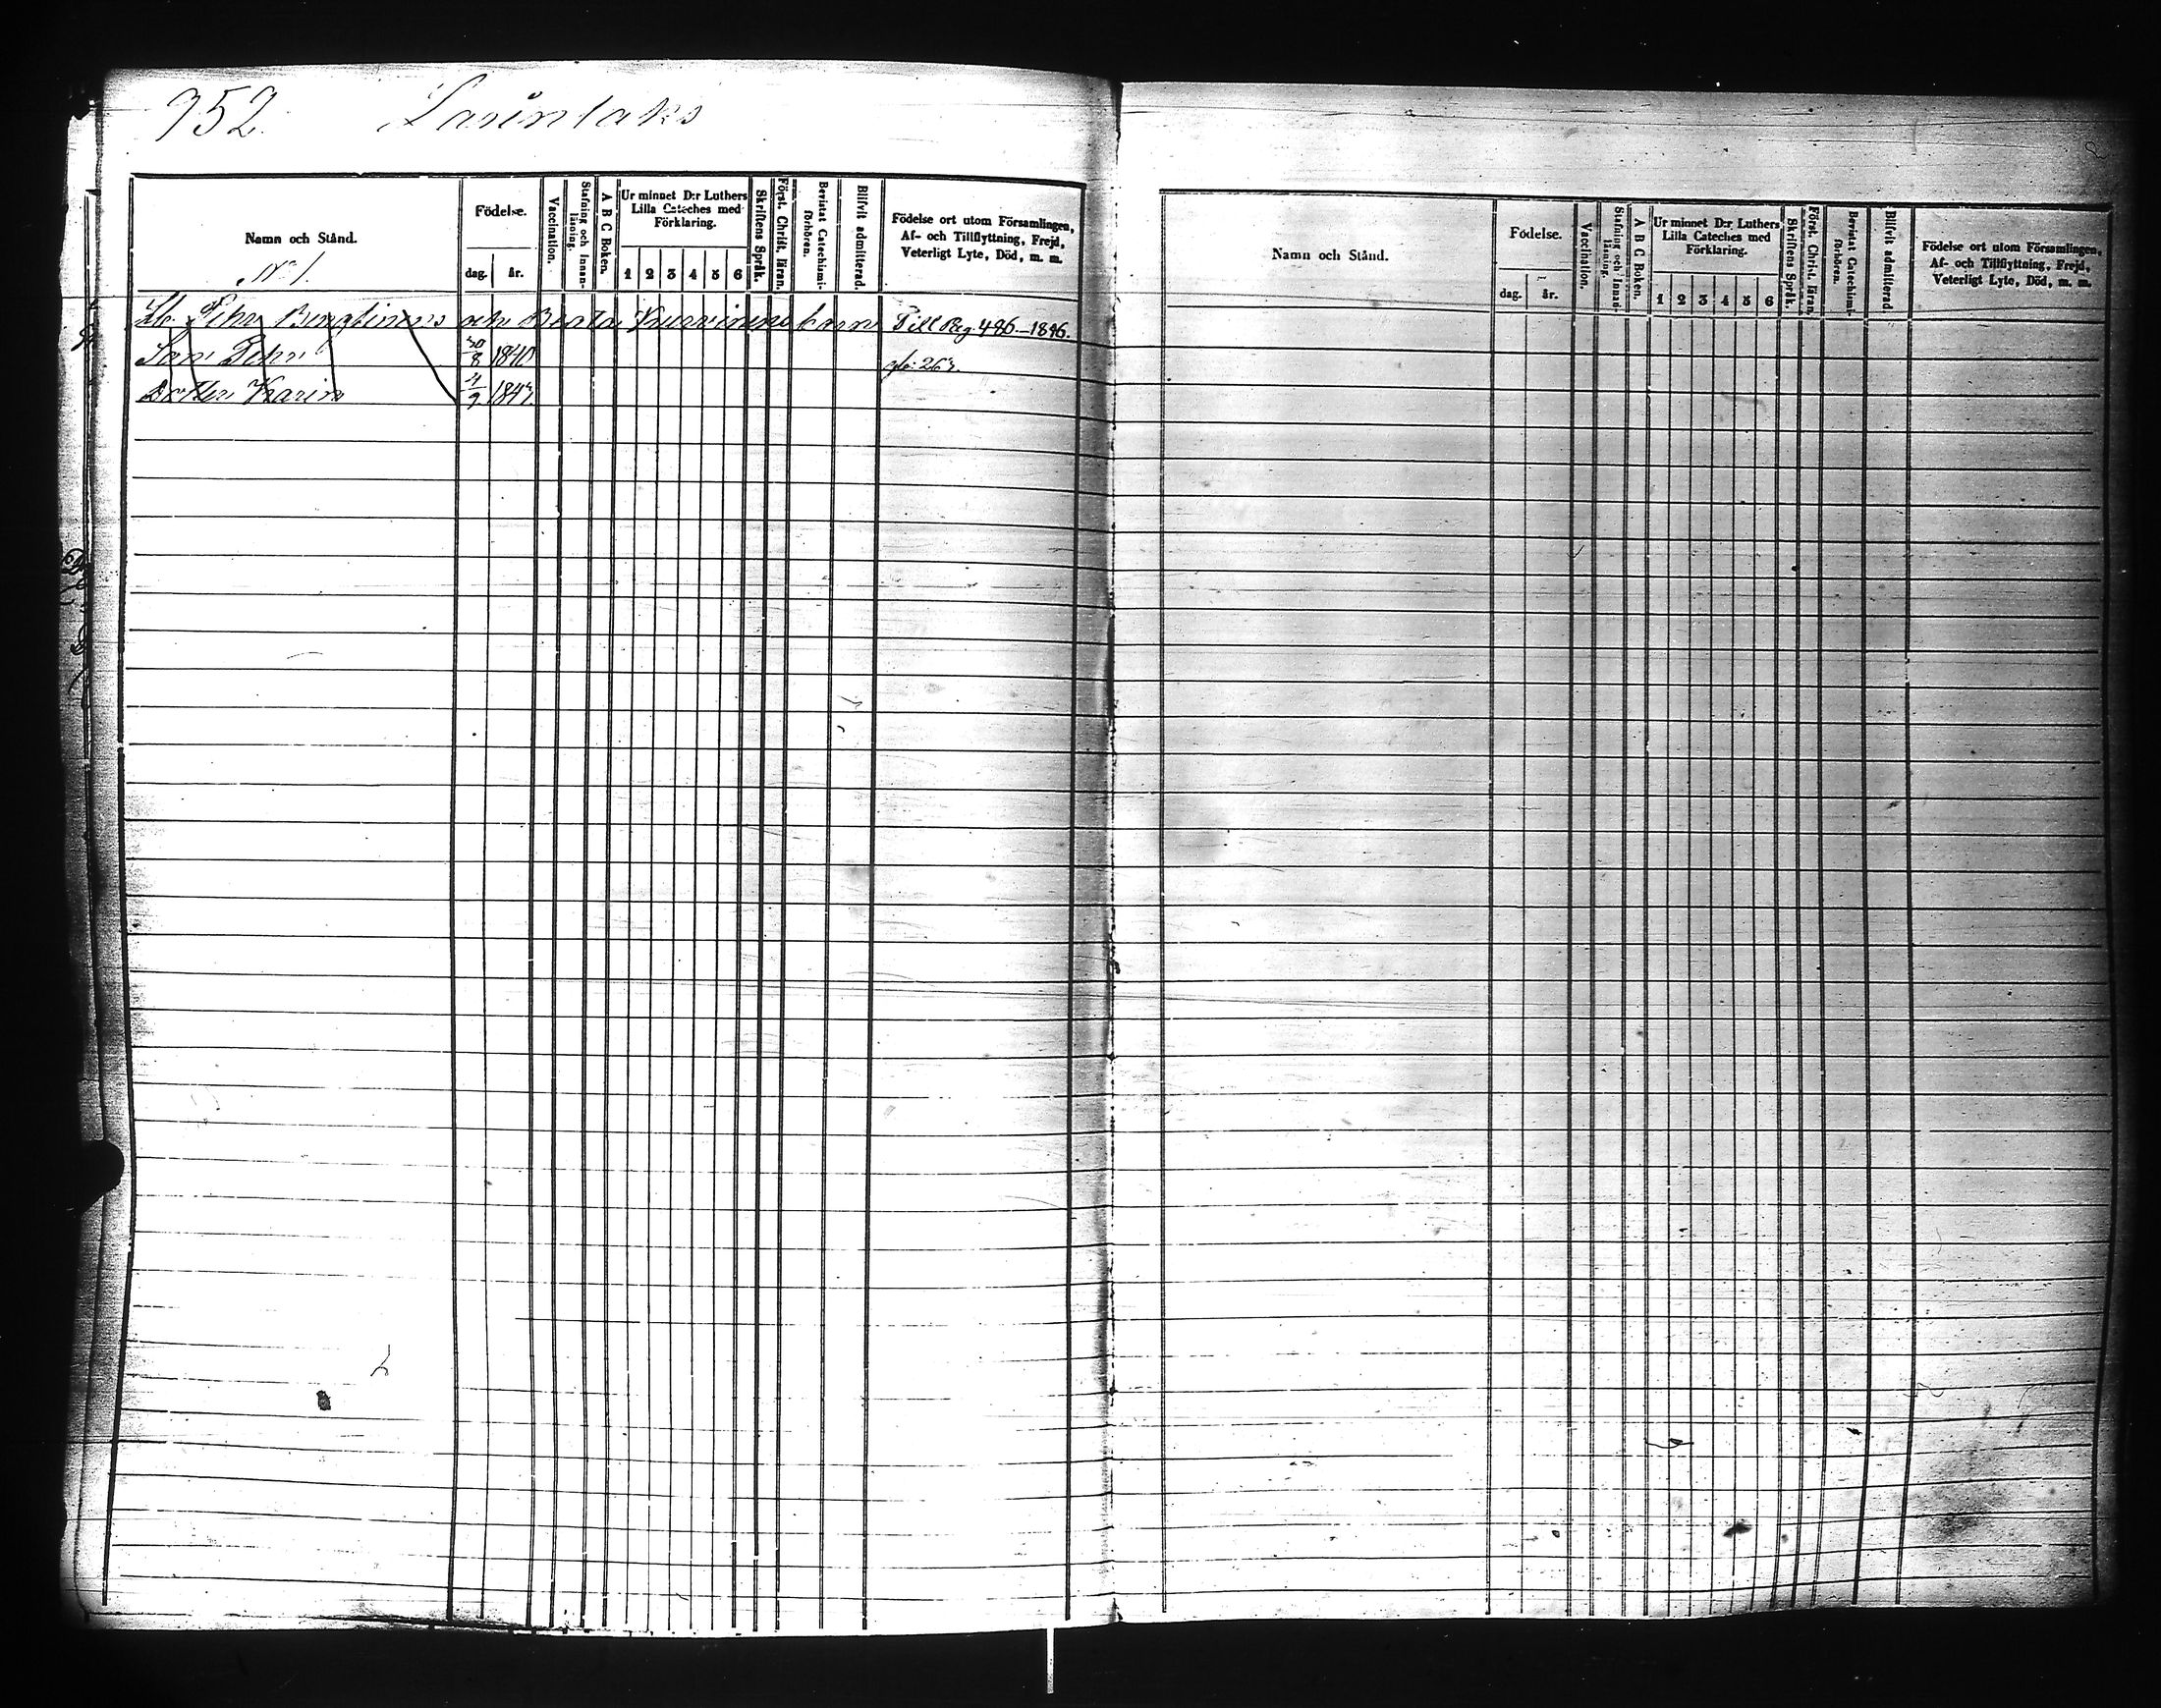 952.
Namn och Stånd.
Födelse.
dag. år.
Vaccination.
Stafning och Innan-läsning.
A B C Boken.
Ur minnet D:r Luthers
Lilla Cateches med
Förklaring.
1 2 3 4 5 6
Skriftens Språk.
Först. Christ. läran.
Bevistat Catechismi-förhören.
Blifvit admitterad.
Födelse ort utom Församlingen,
Af- och Tillflyttning, Frejd,
Veterligt Lyte, Död, m. m.
No 1.
och Beata barn Till Pag. 486.–1846.
30/8 1840
Karin 4/9 1843.
Namn och Stånd.
Födelse.
dag. år.
Vaccination.
Stafning och Innad-läsning.
A B C Boken.
Ur minnet D:r Luthers
Lilla Cateches med
Förklaring.
1 2 3 4 5 6
Skriftens Språk.
Först. Christ. läran.
Bevistat Catechismi-förhören.
Blifvit admitterad.
Födelse ort utom Församlingen,
Af- och Tillflyttning, Frejd,
Veterligt Lyte, Död, m. m.